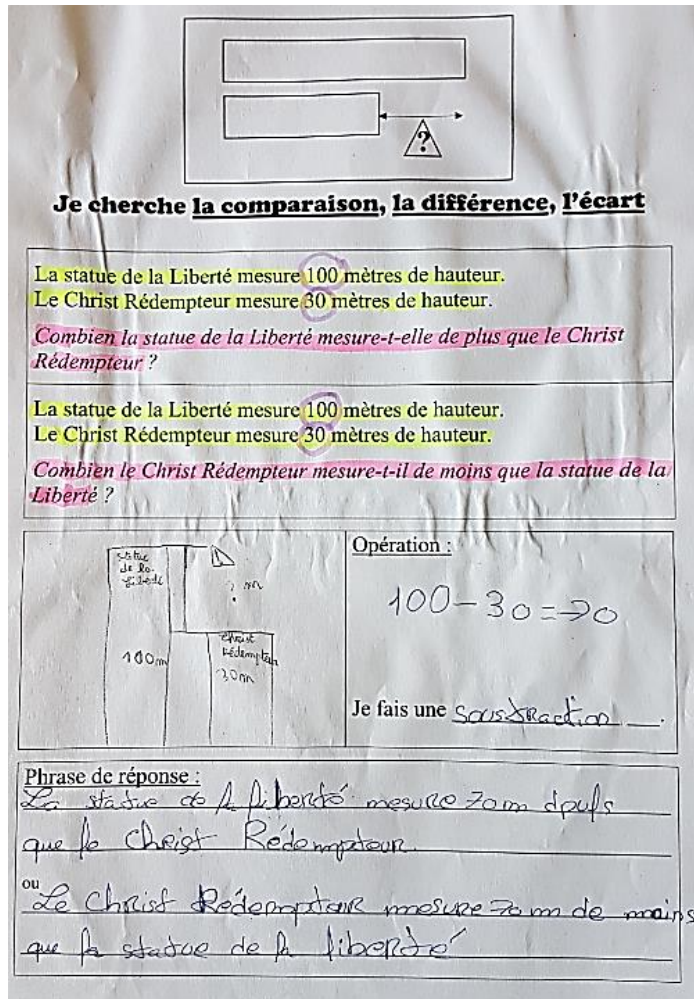 ?
Je cherche la comparaison, la différence, l'écart
La statue de la Liberté mesure 100 mètres de hauteur.
Le Christ Rédempteur mesure 30 mètres de hauteur.
Combien la statue de la Liberté mesure-t-elle de plus que le Christ
Rédempteur ?
La statue de la Liberté mesure 100 mètres de hauteur.
Le Christ Rédempteur mesure 30 mètres de hauteur.
Combien le Christ Rédempteur mesure-t-il de moins que la statue de la
Liberté ?
statue
de la
? m
100m
Christ
30m
Opération :
100-30=70
Je fais une soustraction.
Phrase de réponse :
La statue de la liberté mesure 70m
que le Christ Rédempteur
ou
Le Christ mesure 70 m de moins
que la statue de la liberté